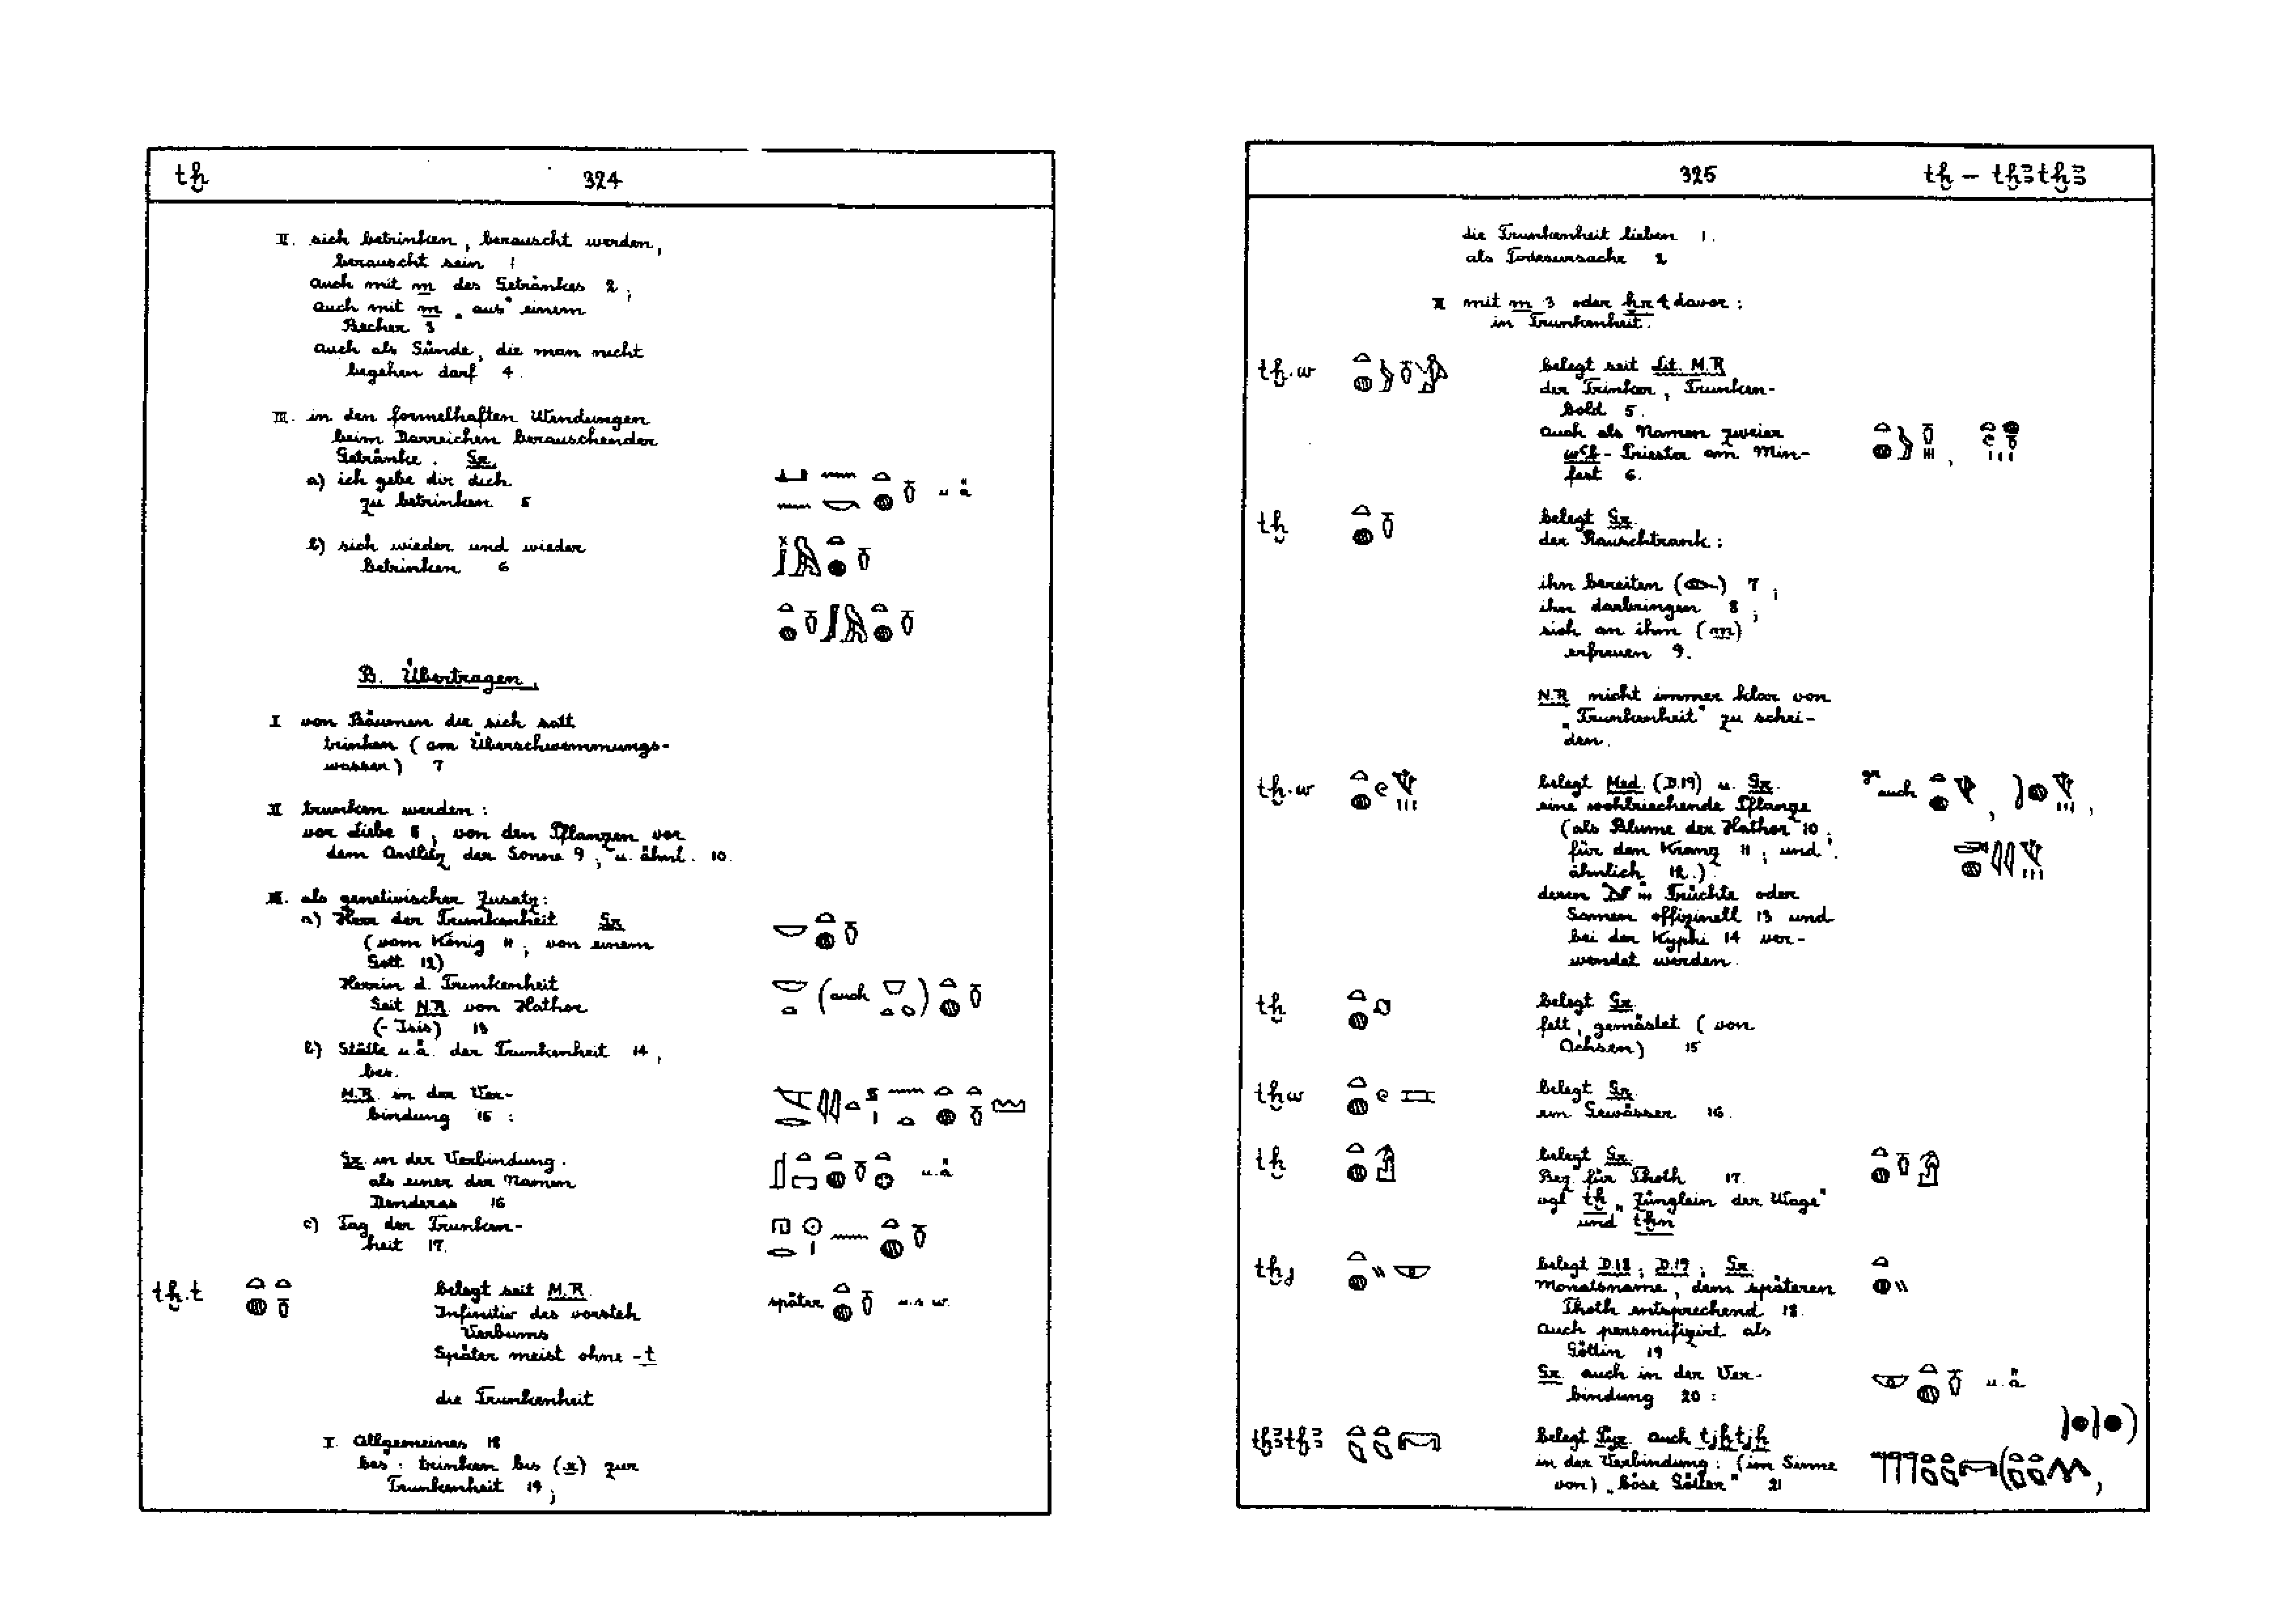 tḫ 324
II. sich betrinken, berauscht werden,
berauscht sein 1
auch mit m des Getränkes 2;
auch mit m „aus“ einem
Becher 3
auch als Sünde, die man nicht
begehen darf 4.
III. in den formelhaften Wendungen
beim Darreichen berauschender
Getränke. Gr.
a) ich gebe dir dich
zu betrinken 5 u. ä
b) sich wieder und wieder
betrinken 6
B. Übertragen.
I von Bäumen die sich satt
trinken (am Überschwemmungs-
wasser) 7
II trunken werden:
vor Liebe 8; von den Pflanzen vor
dem Antlitz der Sonne 9; u. ähnl. 10.
III. als genetivischer Zusatz:
a) Herr der Trunkenheit Gr.
(vom König 11; von einem
Gott 12)
Herrin d. Trunkenheit (auch )
Seit N.R. von Hathor
(-Isis) 13
b) Stätte u. ä. der Trunkenheit 14,
bes.
N.R. in der Ver-
bindung 15:
Gr. in der Verbindung.
als einer der Namen u. ä
Denderas 16
c) Tag der Trunken-
heit 17.
tḫ.t belegt seit M.R. später u.s.w.
Infinitiv des vorsteh
Verbums
Später meist ohne -t
die Trunkenheit
I. Allgemeines 18
bes: trinken bis (r) zur
Trunkenheit 19;
325 tḫ – tḫꜣtḫꜣ
die Trunkenheit lieben 1.
als Todesursache 2
II mit m 3 oder ẖr 4 davor:
in Trunkenheit.
tḫ.w belegt seit Lit. M.R
der Trinker, Trunken-
bold 5.
auch als Namen zweier
wꜥb-Priester am Min-
fest 6.
tḫ belegt Gr.
der Rauschtrank:
ihn bereiten ( ) 7;
ihn darbringen 8;
sich an ihm (m)
erfreuen 9.
N.R nicht immer klar von
„Trunkenheit“ zu schei-
den.
tḫ.w belegt Med. (D.19) u. Gr. gr auch
eine wohlriechende Pflanze
(als Blume der Hathor 10;
für den Kranz 11; und
ähnlich 12.)
deren Früchte oder
Samen offizinell 13 und
bei der Kyphi 14 ver-
wendet werden.
tḫ belegt Gr.
fett, gemästet (von
Ochsen) 15
tḫw belegt Gr.
ein Gewässer 16.
tḫ belegt Gr.
Bez. für Thoth 17.
vgl tḫ „Zünglein der Wage“
und tḫn
tḫj belegt D.18; D.19; Gr.
Monatsname, dem späteren
Thoth entsprechend 18.
Auch personifizirt als
Göttin 19
Gr. auch in der Ver-
bindung 20: u. ä
tḫꜣtḫꜣ belegt Pyr. auch tjḫtjḫ
in der Verbindung: (im Sinne
von) „böse Götter“ 21